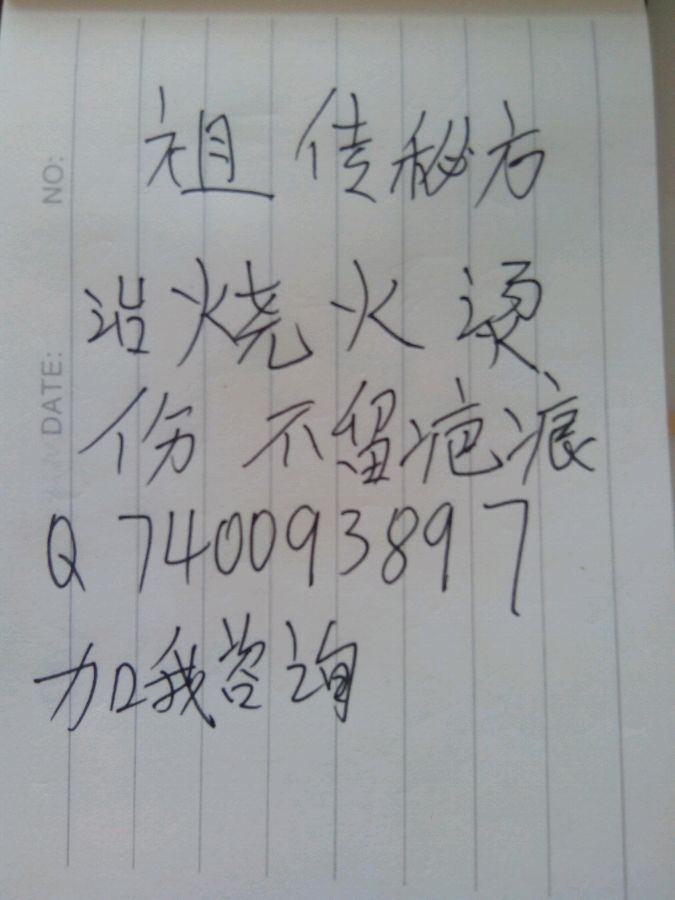 祖传秘方
治烧火烫
伤不留疤痕
Q 740093897
加我咨询
NO:
DATE: